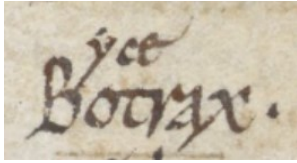 yce
Botrax.